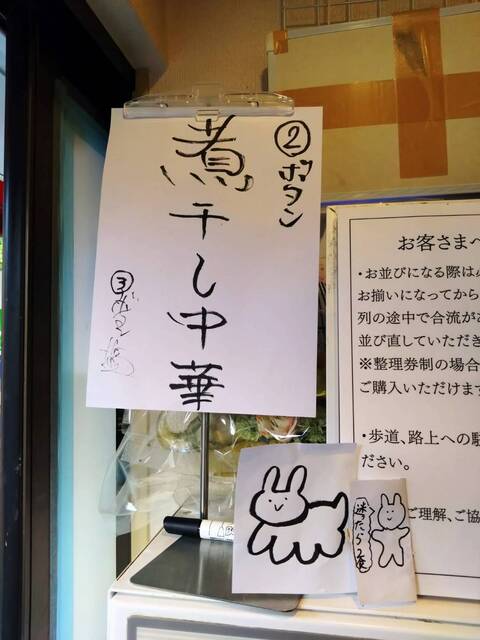 ②ボタン
煮干し中華
お客さまへ
・お並びになる際は
お揃いになってから
列の途中で合流が
並び直していただき
※整理券制の場合
ご購入いただけます
・歩道、路上への駐
ださい。
ご理解、ご協
迷ったら2塩